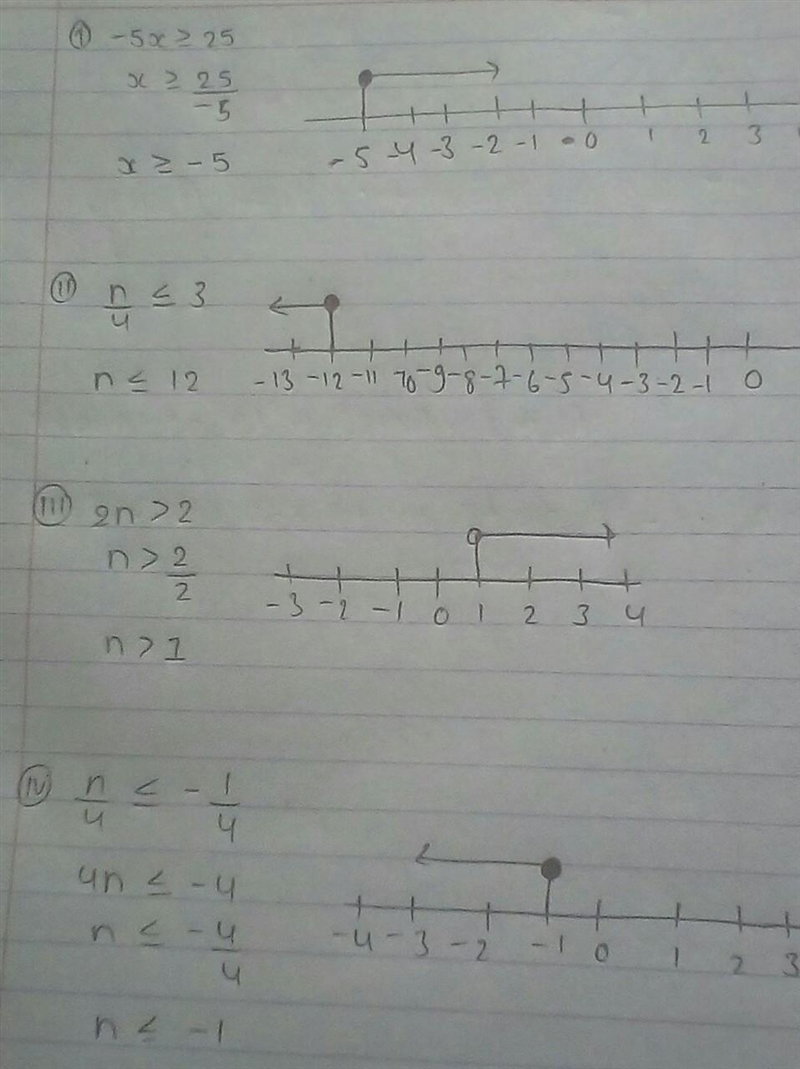 (i) -5x ≥ 25
x ≥ 25/-5
x ≥ -5
-5 -4 -3 -2 -1 -0 1 2 3
(ii) n/4 ≤ 3
n ≤ 12
-13 -12 -11 -10 -9 -8 -7 -6 -5 -4 -3 -2 -1 0
(iii) 2n > 2
n > 2/2
n > 1
-3 -2 -1 0 1 2 3 4
(iv) n/4 ≤ -1/4
4n ≤ -4
n ≤ -4/4
n ≤ -1
-4 -3 -2 -1 0 1 2 3